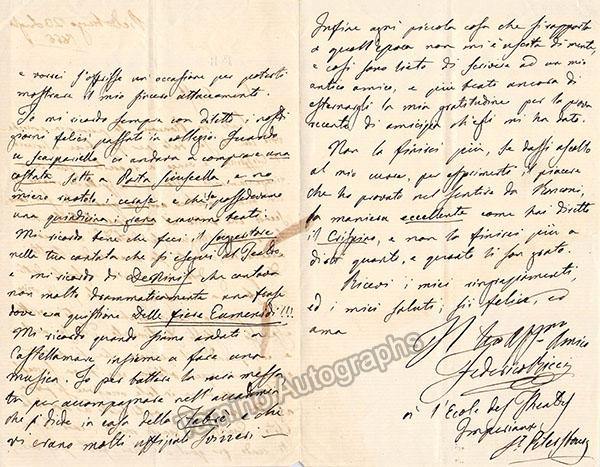 e vorrei s'offrisse un'occasione per poterti
mostrare il mio sincero attaccamento.
Io mi ricordo sempre con diletto i nostri
giorni felici passati in collegio. Quando
a comprare una
sotto a Porta e
i cerase, e possedevamo
una eravamo beati.
Mi ricordo bene che feci il suggeritore
nella tua cantata che si eseguì al Teatro,
e mi ricordo di che cantava
non molto drammaticamente una frase
dove era quistione Delle fiere Eumenidi!!!
Mi ricordo quando siamo andati a
Castellamare insieme a fare una
musica. Io per battere la mia messa
tu per accompagnare nell'accademia
che si diede in casa della e che
vi erano molti uffiziali Svizzeri
Infine ogni piccola cosa che si rapporta
a quell'epoca non mi è uscita di mente,
e così sono lieto di scrivere ad un mio
antico amico, e più beato ancora di
esternargli la mia gratitudine per la prova
recente di amicizia ch'egli mi ha dato.
Non la finirei più, se dassi ascolto
al mio cuore, per esprimerti il piacere
che ho provato nel sentire da
la maniera eccellente come hai diretto
il Crispino, e non la finirei più a
dirti quanto, e quanto ti son grato.
Ricevi i miei ringraziamenti,
ed i miei saluti; sii felice, ed
ama
Il tuo Amico
Federico Ricci
à l'Ecole des Theatres
Imperiaux
St Petersbourg
Tamino Autographs